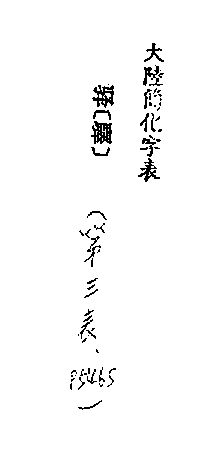 大陸簡化字表
(第三表、P5465)